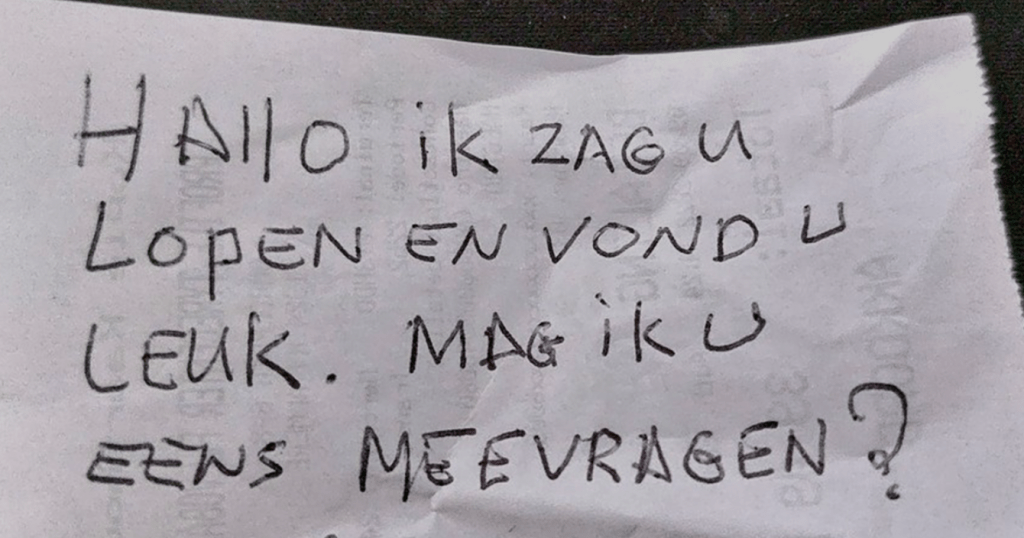 HAllO ik ZAG U
LOPEN EN VOND U
LEUK. MAG iK U
EENS MEEVRAGEN?